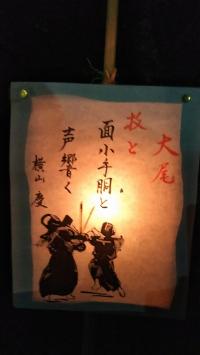 大尾
技と
面小手胴と
声響く
横山 慶